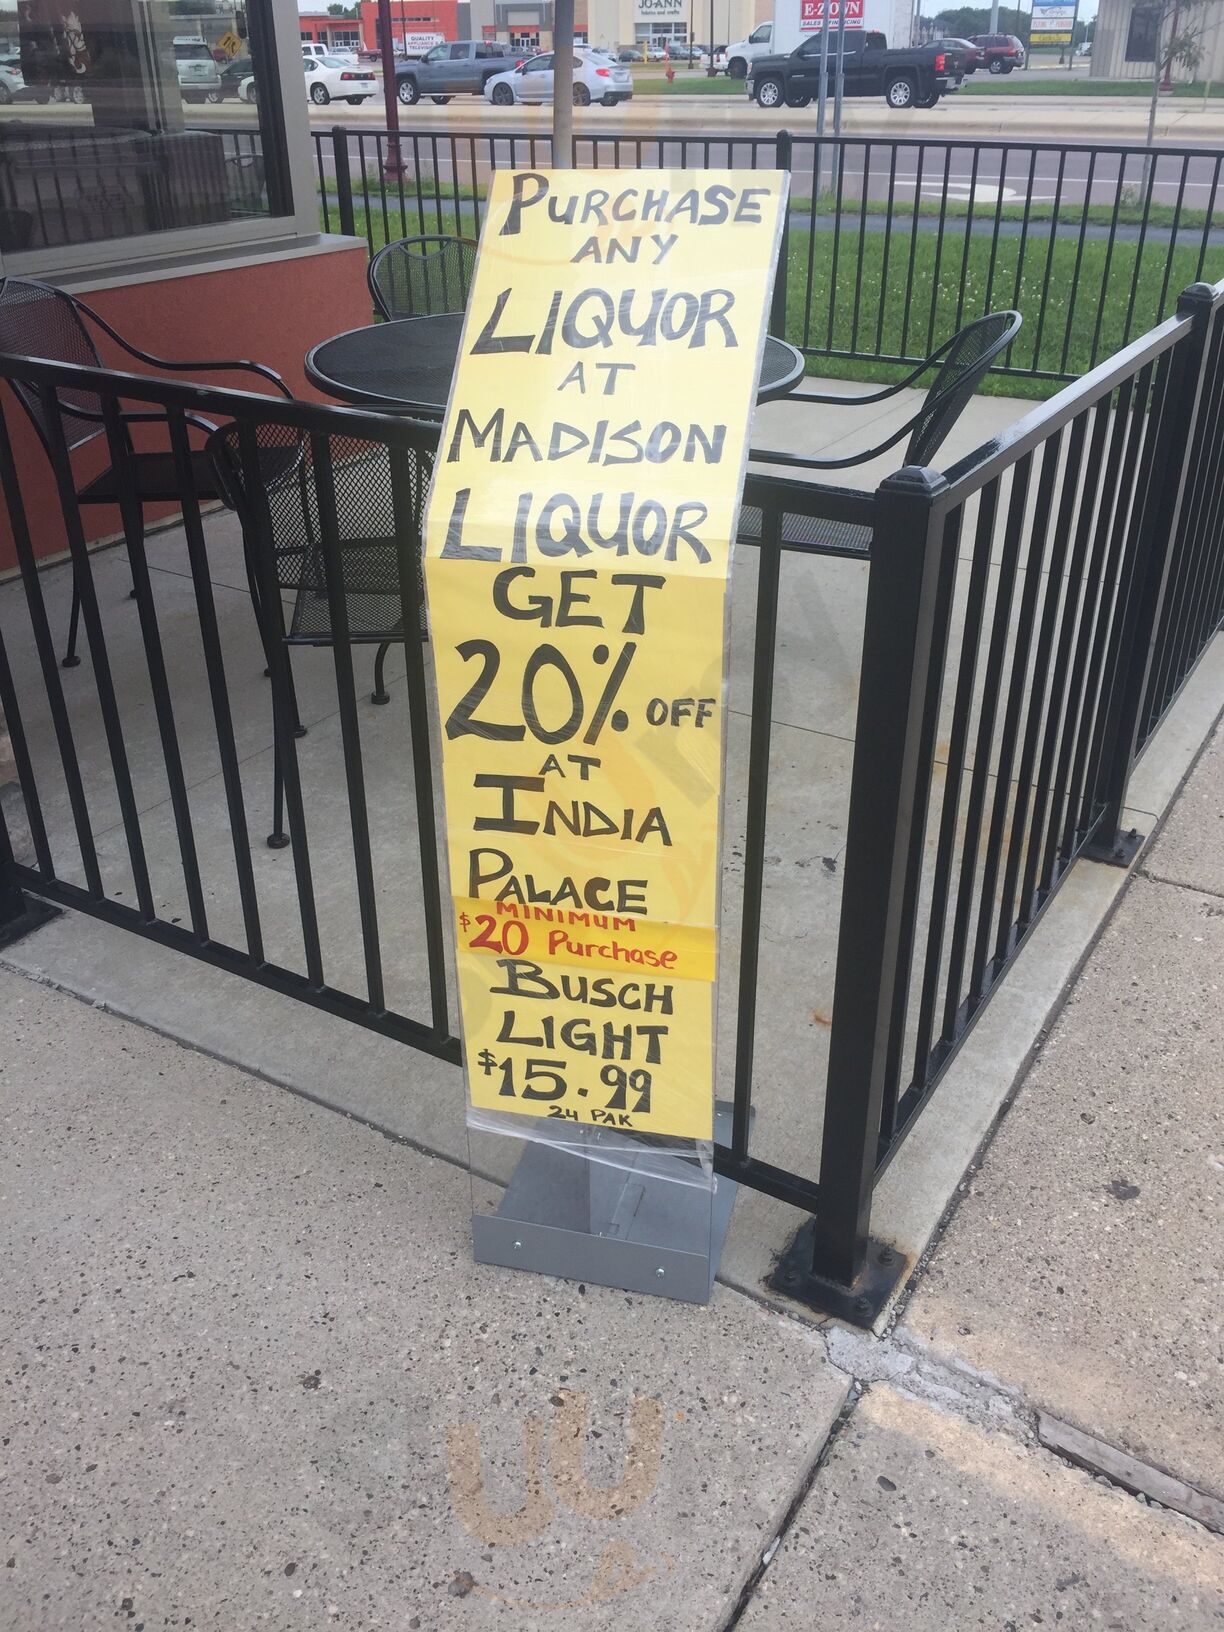 JO-ANN
fabrics and crafts
E-Z OWN
QUALITY
PURCHASE
ANY
LIQUOR
AT
MADISON
LIQUOR
GET
20% OFF
AT
INDIA
PALACE
MINIMUM
$20 Purchase
BUSCH
LIGHT
$15.99
24 PAK